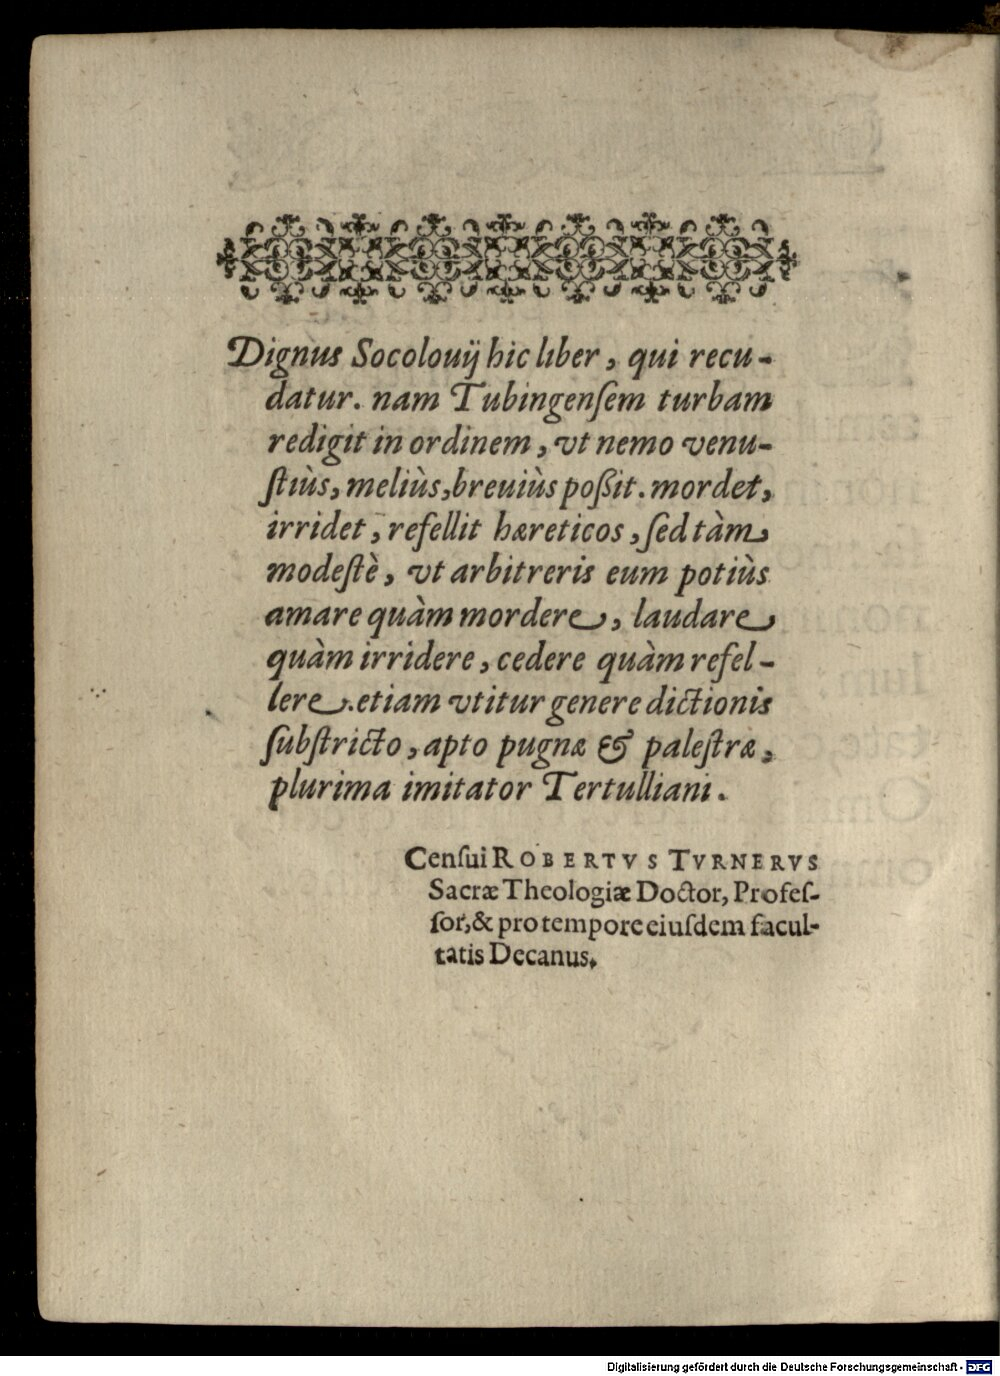 Dignus Socolouij hic liber, qui recu-
datur. nam Tubingenſem turbam
redigit in ordinem, vt nemo venu-
ſtiùs, meliùs, breuiùs poßit. mordet,
irridet, refellit hæreticos, ſed tàm
modeſtè, vt arbitreris eum potiùs
amare quàm mordere, laudare
quàm irridere, cedere quàm refel-
lere. etiam vtitur genere dictionis
ſubſtricto, apto pugnæ & paleſtræ,
plurima imitator Tertulliani.
Cenſui ROBERTVS TVRNERVS
Sacræ Theologiæ Doctor, Profeſ-
ſor, & pro tempore eiuſdem facul-
tatis Decanus.
Digitalisierung gefördert durch die Deutsche Forschungsgemeinschaft - DFG